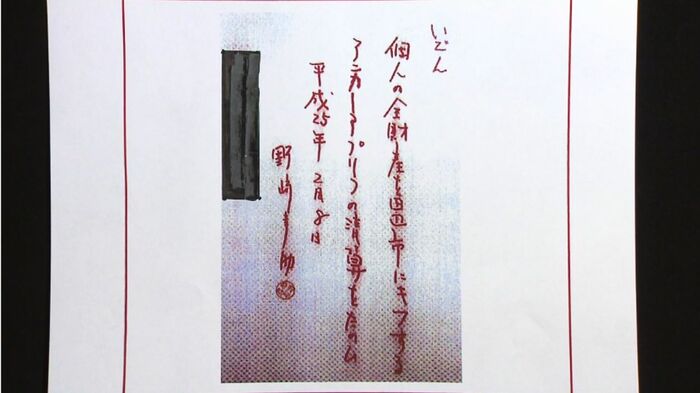 いごん
個人の全財産を田辺市にキフする
アンカー、アプリコの清算をたのむ
平成25年2月8日
野崎幸助